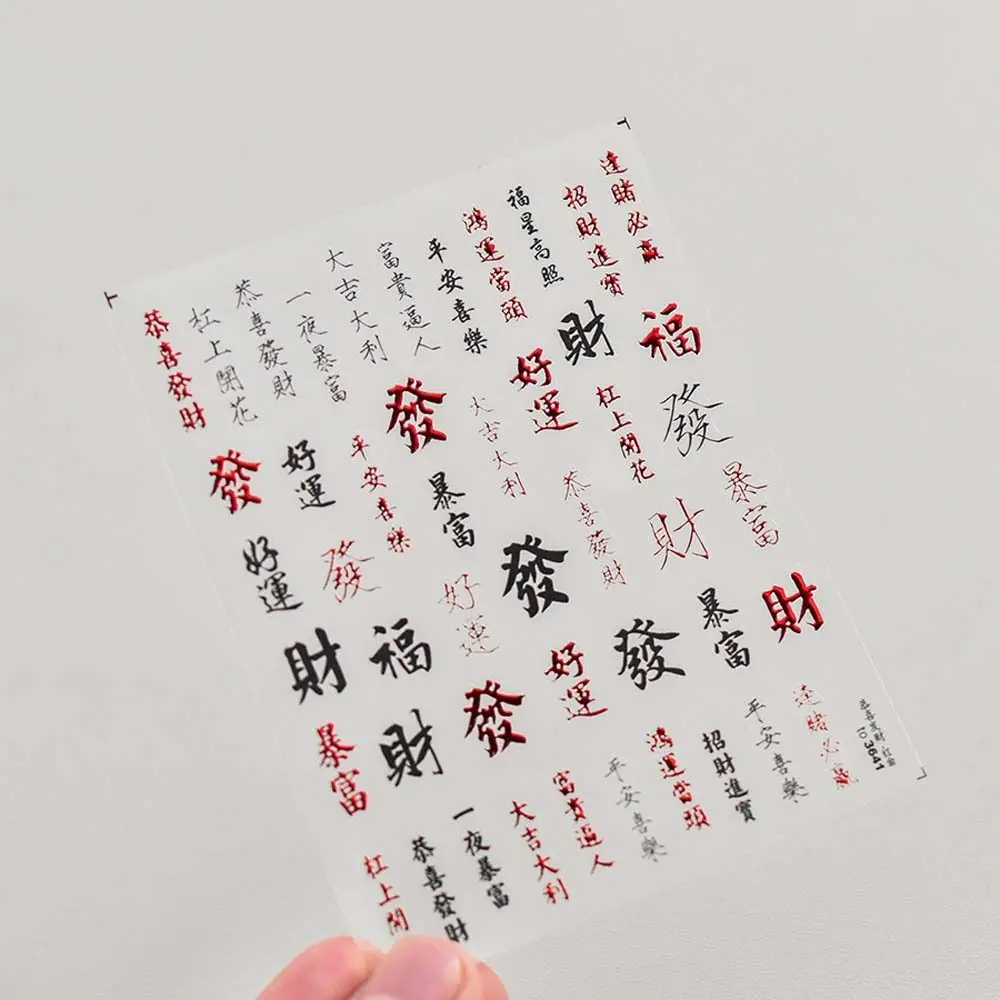 恭喜發財
杠上開花
恭喜發財
一夜暴富
大吉大利
富貴逼人
平安喜樂
鴻運當頭
福星高照
招財進寶
逢賭必贏
發
好運
平安喜樂
發
大吉大利
好運
財
福
好運
發
暴富
恭喜發財
杠上開花
發
財
福
好運
發
財
暴富
暴富
財
發
好運
發
暴富
財
杠上開
恭喜發財
一夜暴富
大吉大利
富貴逼人
平安喜樂
鴻運當頭
招財進寶
平安喜樂
逢賭必贏
恭喜发财
3641